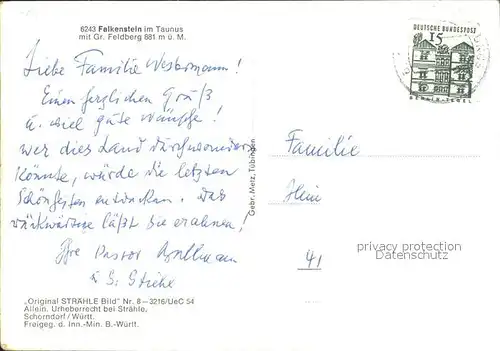 6243 Falkenstein im Taunus
mit Gr. Feldberg 881 m ü. M.
DEUTSCHE BUNDESPOST
15
BERLIN-TEGEL
Liebe Familie Westermann!
Einen herzlichen Gruß
u. viel gute Wünsche!
Wer dies Land durchwandern
könnte, würde die letzten
Schönheiten entdecken. Das
läßt Sie erahnen!
Ihre Pastor
u. S.
Familie
41
Gebr. Metz, Tübingen
privacy protection
watermark for Delcampe
„Original STRÄHLE Bild" Nr. 8–3216/UeC 54
Allein. Urheberrecht bei Strähle,
Schorndorf / Württ.
Freigeg. d. Inn.-Min. B.-Württ.